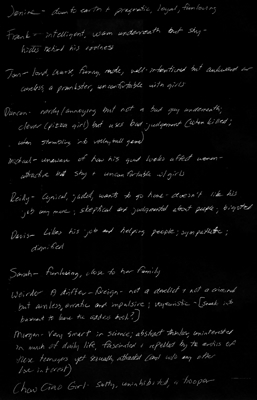 Denise - down to earth + pragmatic, loyal, funloving
Frank - intelligent, warm underneath but shy -
hides behind his coolness
Tom - loud, crass, funny, rude, well-intentioned but awkward or
a prankster, uncomfortable with girls
Duncan - nerdy/annoying but not a bad guy underneath;
clever (pizza girl) but uses bad judgment (when killed;
when volleyball game)
- unaware of how his good looks affect women -
attractive but shy + uncomfortable w/ girls
Reilly - Cynical, jaded, wants to go home - doesn't like his
job any more; skeptical and judgmental about people; bigoted
Davis - Likes his job and helping people; sympathetic;
dignified
Sarah - Funloving, close to her family
Weirder A drifter - foreign - not a derelict + not a criminal
but aimless, erratic and impulsive; vegetarian - [
hermit to have the ?]
Morgan - Very smart in science; abstract thinker, uninterested
in much of daily life, fascinated + repelled by the antics of
these teenagers yet sexually attracted (and w/o any other
love interest)
Chow Ciao Girl - salty, uninhibited, a